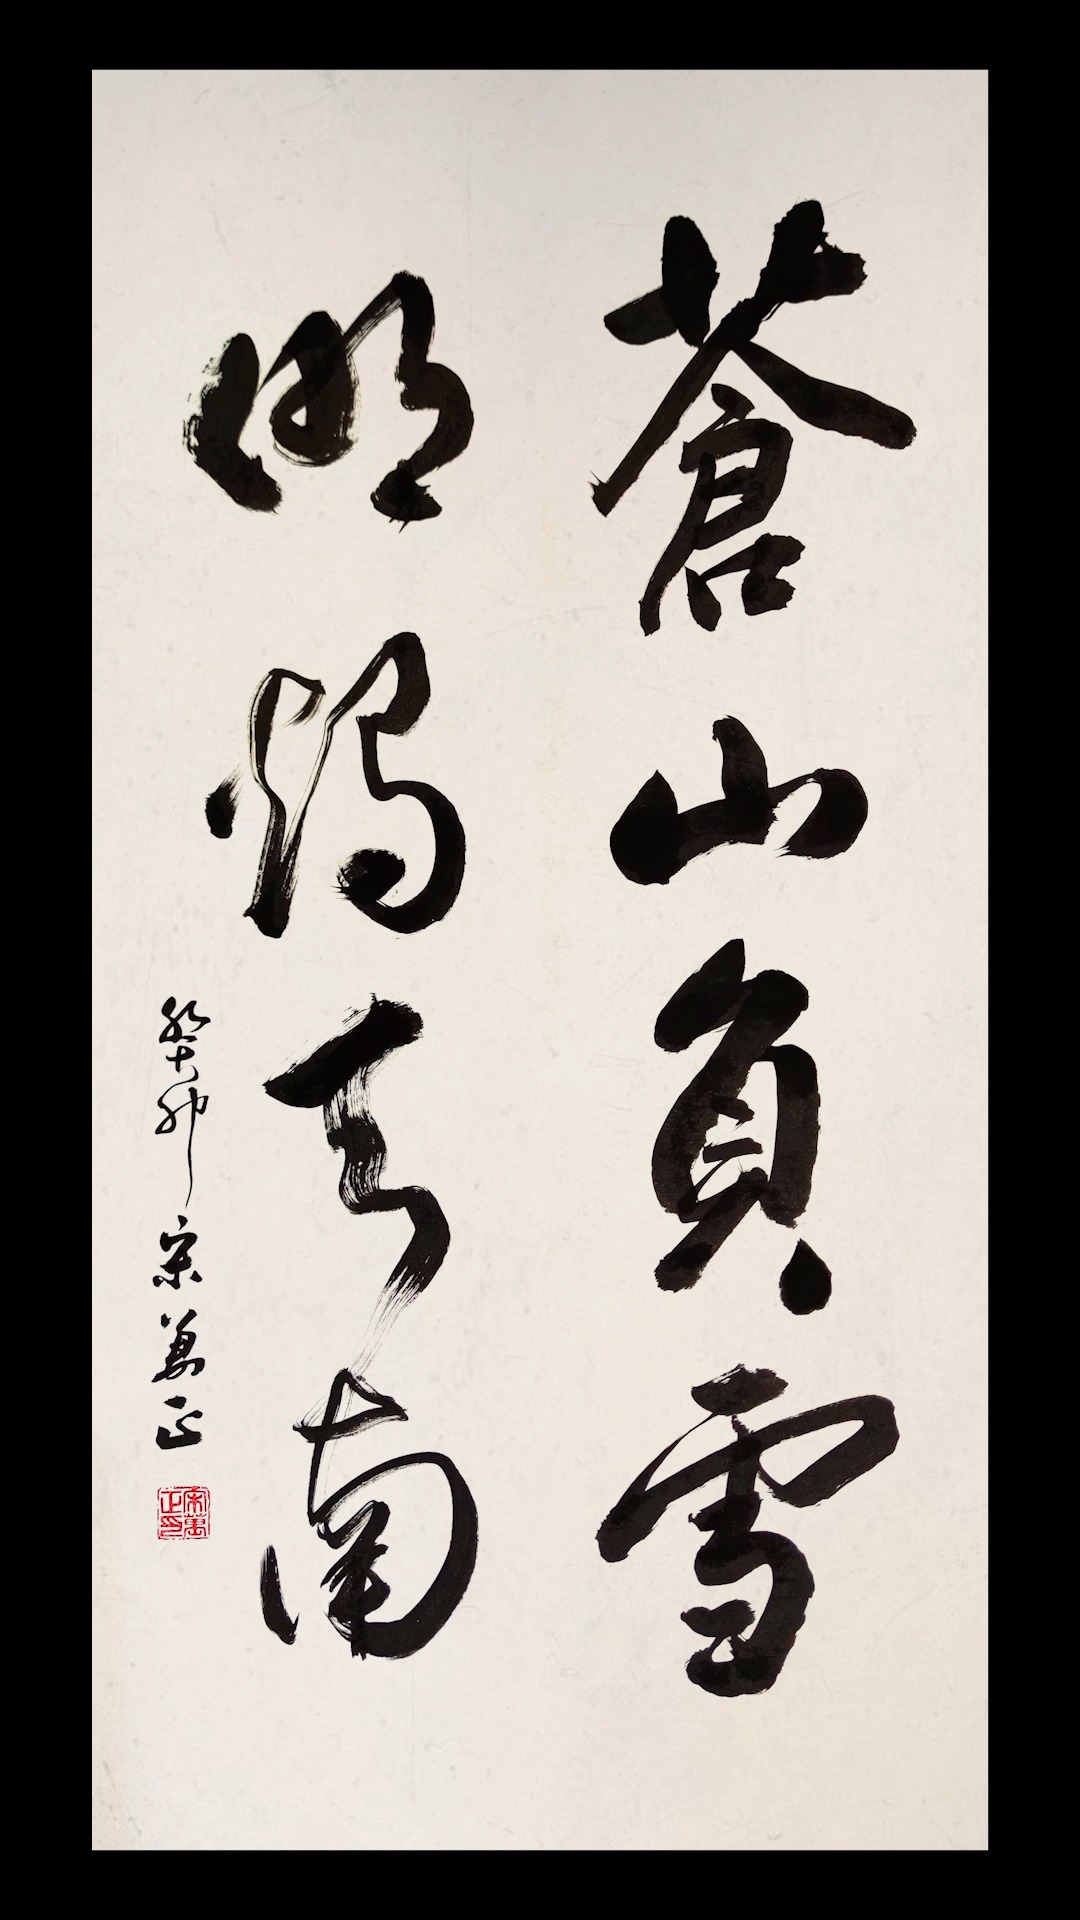 蒼山負雪
明燭天南
癸卯宋萬正
宋萬正印